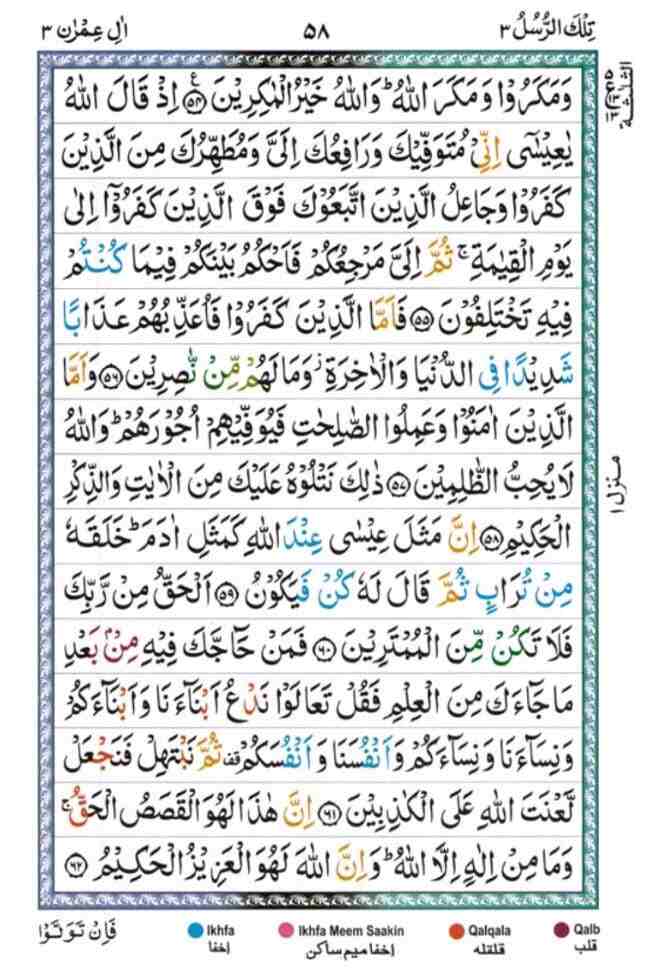 تِلْكَ الرُّسُلُ ٣
٥٨
اٰلِ عِمْرٰن ٣
وَمَكَرُوْا وَمَكَرَ اللّٰهُ ؕ وَاللّٰهُ خَيْرُ الْمٰكِرِيْنَ ۝٥٤ اِذْ قَالَ اللّٰهُ
يٰعِيْسٰٓى اِنِّىْ مُتَوَفِّيْكَ وَرَافِعُكَ اِلَىَّ وَمُطَهِّرُكَ مِنَ الَّذِيْنَ
كَفَرُوْا وَجَاعِلُ الَّذِيْنَ اتَّبَعُوْكَ فَوْقَ الَّذِيْنَ كَفَرُوْٓا اِلٰى
يَوْمِ الْقِيٰمَةِ ۚ ثُمَّ اِلَىَّ مَرْجِعُكُمْ فَاَحْكُمُ بَيْنَكُمْ فِيْمَا كُنْتُمْ
فِيْهِ تَخْتَلِفُوْنَ ۝٥٥ فَاَمَّا الَّذِيْنَ كَفَرُوْا فَاُعَذِّبُهُمْ عَذَابًا
شَدِيْدًا فِى الدُّنْيَا وَالْاٰخِرَةِ ؗ وَمَا لَهُمْ مِّنْ نّٰصِرِيْنَ ۝٥٦ وَاَمَّا
الَّذِيْنَ اٰمَنُوْا وَعَمِلُوا الصّٰلِحٰتِ فَيُوَفِّيْهِمْ اُجُوْرَهُمْ ؕ وَاللّٰهُ
لَا يُحِبُّ الظّٰلِمِيْنَ ۝٥٧ ذٰلِكَ نَتْلُوْهُ عَلَيْكَ مِنَ الْاٰيٰتِ وَالذِّكْرِ
الْحَكِيْمِ ۝٥٨ اِنَّ مَثَلَ عِيْسٰى عِنْدَ اللّٰهِ كَمَثَلِ اٰدَمَ ؕ خَلَقَهٗ
مِنْ تُرَابٍ ثُمَّ قَالَ لَهٗ كُنْ فَيَكُوْنُ ۝٥٩ اَلْحَقُّ مِنْ رَّبِّكَ
فَلَا تَكُنْ مِّنَ الْمُمْتَرِيْنَ ۝٦٠ فَمَنْ حَآجَّكَ فِيْهِ مِنْۢ بَعْدِ
مَا جَآءَكَ مِنَ الْعِلْمِ فَقُلْ تَعَالَوْا نَدْعُ اَبْنَآءَنَا وَاَبْنَآءَكُمْ
وَنِسَآءَنَا وَنِسَآءَكُمْ وَاَنْفُسَنَا وَاَنْفُسَكُمْ ۟ ثُمَّ نَبْتَهِلْ فَنَجْعَلْ
لَّعْنَتَ اللّٰهِ عَلَى الْكٰذِبِيْنَ ۝٦١ اِنَّ هٰذَا لَهُوَ الْقَصَصُ الْحَقُّ ۚ
وَمَا مِنْ اِلٰهٍ اِلَّا اللّٰهُ ؕ وَاِنَّ اللّٰهَ لَهُوَ الْعَزِيْزُ الْحَكِيْمُ ۝٦٢
الثلثة
منزل ١
فَاِنْ تَوَلَّوْا
Ikhfa
اخفا
Ikhfa Meem Saakin
اخفا ميم ساكن
Qalqala
قلقله
Qalb
قلب